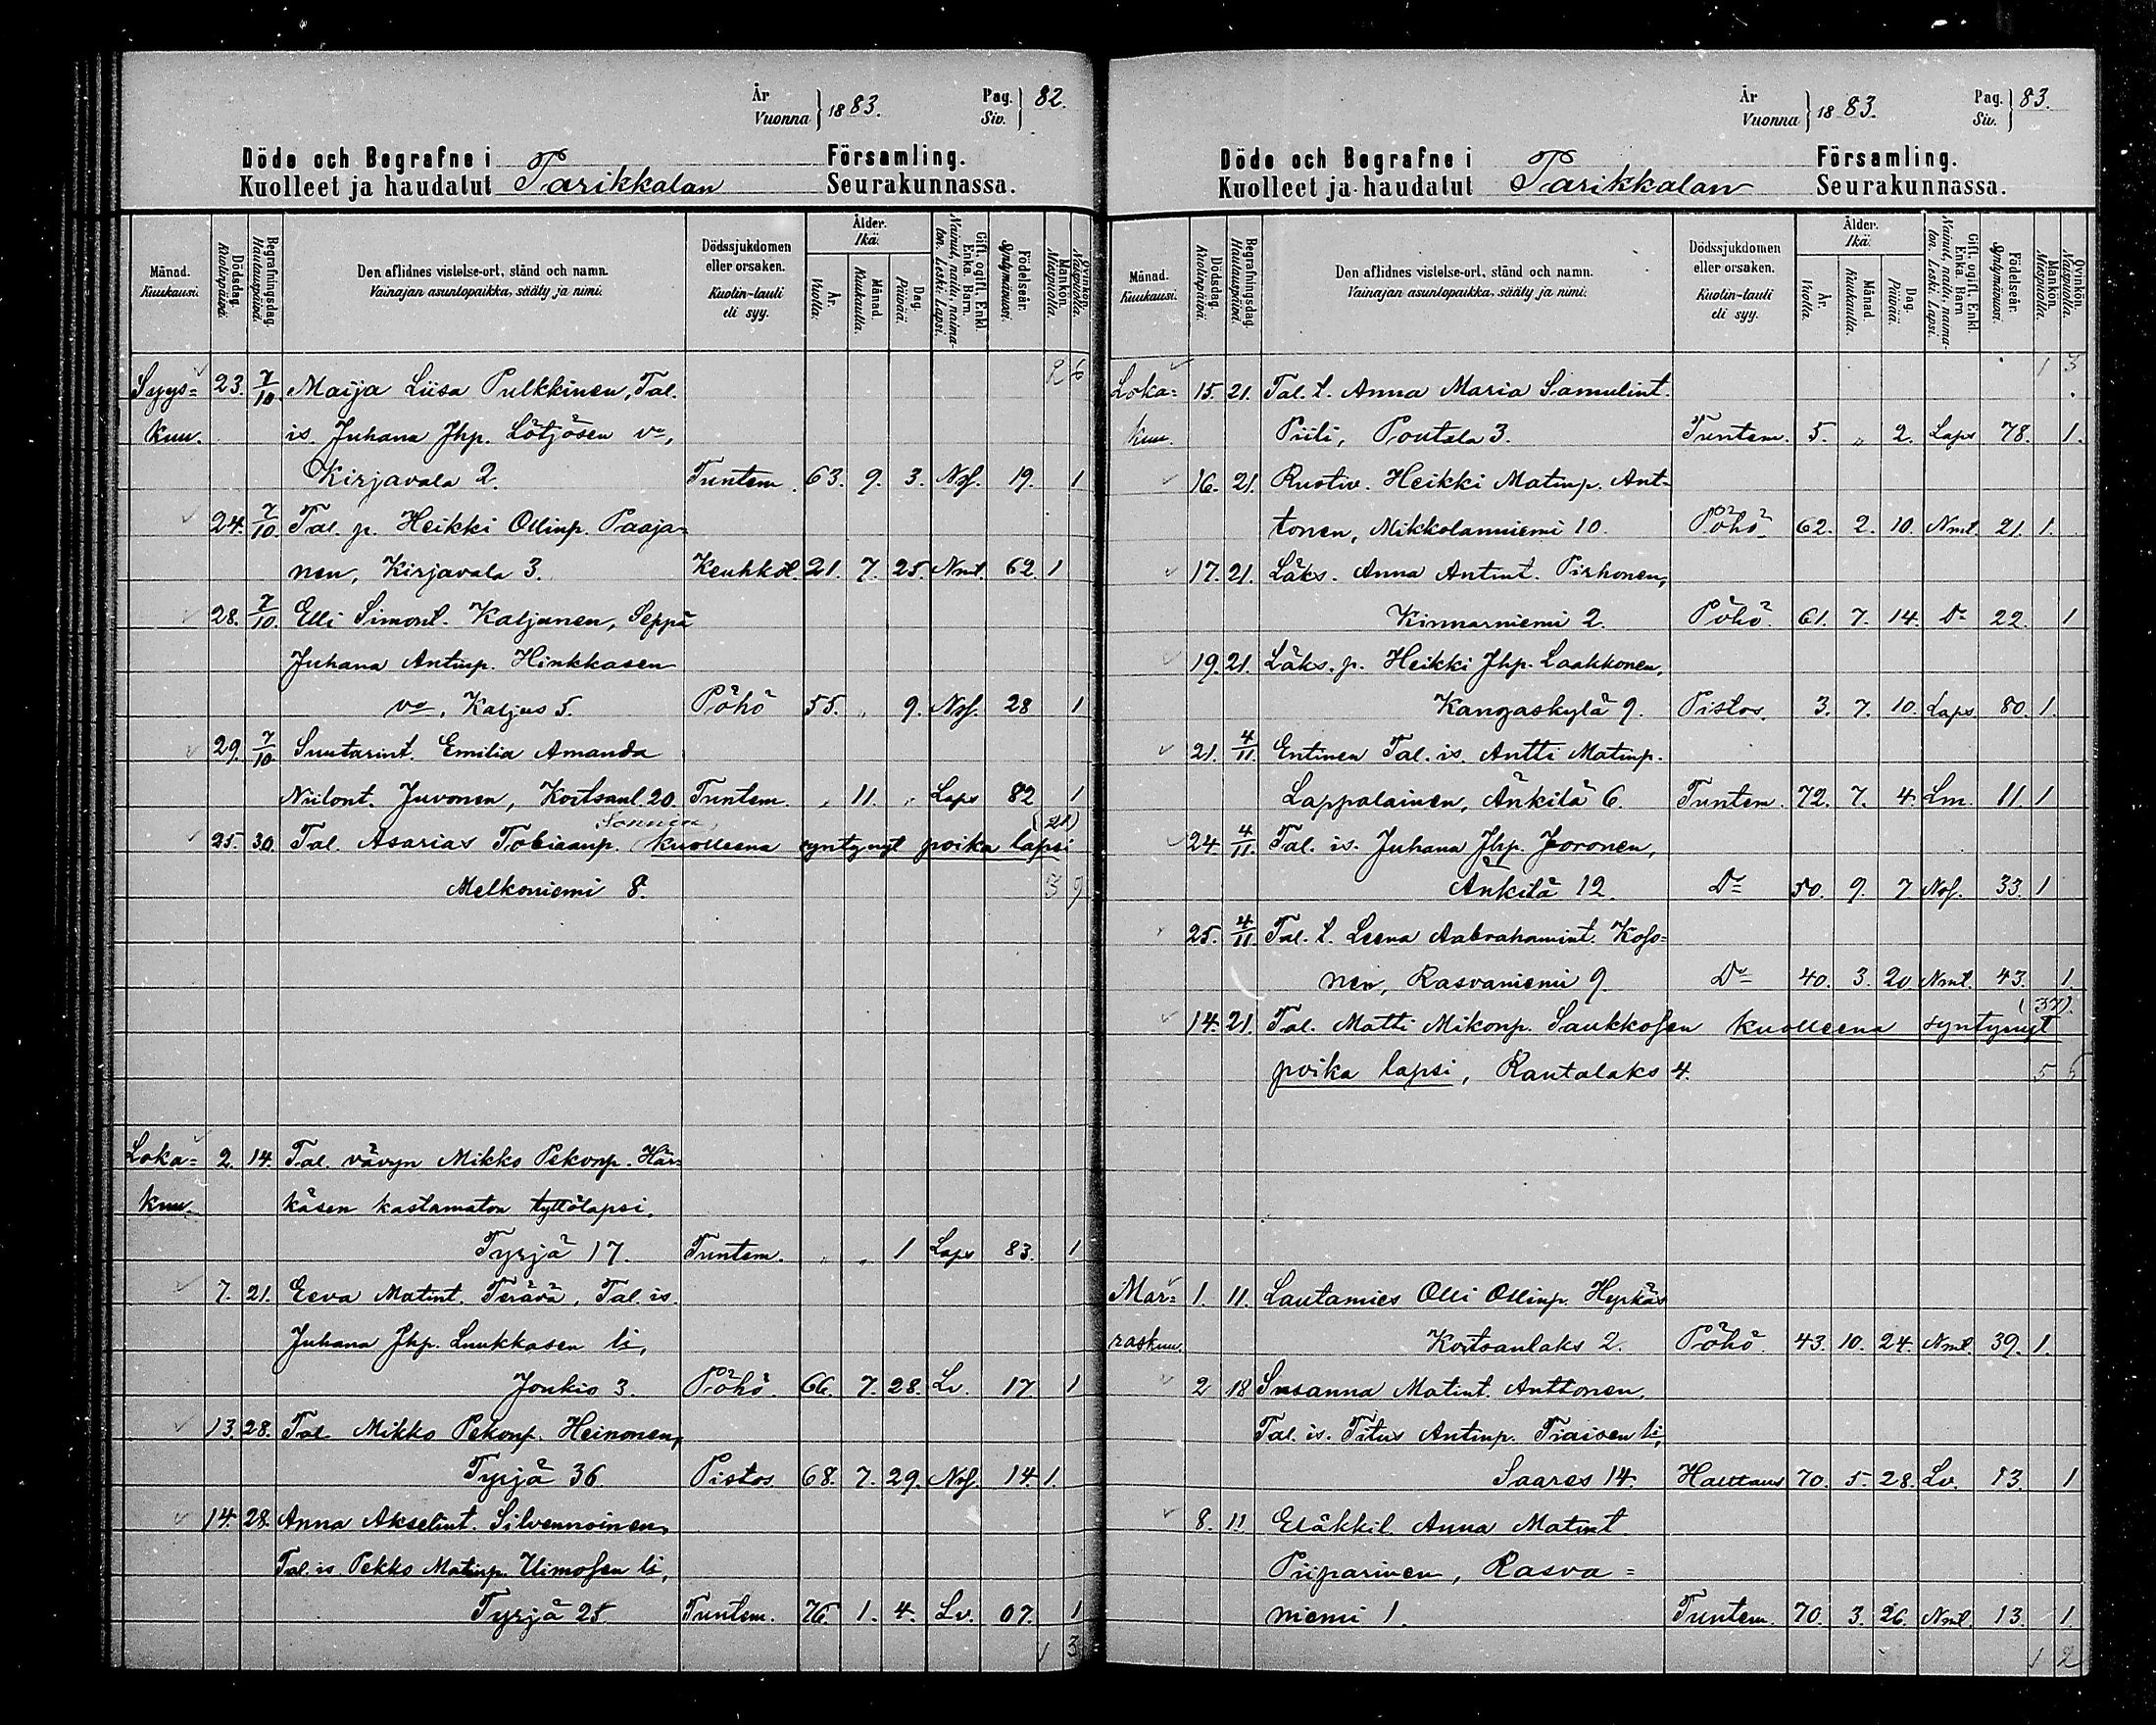 År Vuonna } 1883. Pag. Siv. } 82.
Döde och Begrafne i Församling.
Kuolleet ja haudatut Parikkalan Seurakunnassa.
Månad. Kuukausi. Dödsdag. Kuolinpäivä. Begrafningsdag. Hautauspäivä. Den aflidnes vistelse-ort, stånd och namn. Vainajan asuntopaikka, sääty ja nimi. Dödssjukdomen eller orsaken. Kuolin-tauti eli syy. Ålder. Ikä. År. Vuotta. Månad. Kuukautta. Dag. Päivää. Gift, ogift, Enkl. Enka. Barn. Nainut, naitu, naimaton. Leski. Lapsi. Födelseår. Syntymävuosi. Mankön. Miespuolia. Qvinkön. Naispuolia.
2 6
Syys= 23. 7/10 Maija Liisa Pulkkinen, Tal.
kuu. is. Juhana Jhp. Lötjösen vo,
Kirjavala 2. Tuntem. 63. 9. 3. Nf. 19. 1
24. 7/10. Tal. p. Heikki Ollinp. Paaja=
nen, Kirjavala 3. Keuhköl. 21. 7. 25. Nmt. 62. 1
28. 7/10. Elli Simont. Kaljunen, Seppä
Juhana Antinp. Hinkkasen
vo, Kaljus 5. Pöhö 55. „ 9. Nf. 28 1
29. 7/10. Suutarint. Emilia Amanda
Niilont. Juvonen, Koitsanl. 20. Tuntem. „ 11. „ Laps 82 1
Sonnin (21)
25. 30. Tal. Asarias Tobiaanp. kuolleena syntynyt poika lapsi
Melkoniemi 8. 3 9
Loka= 2. 14. Tal. vävyn Mikko Pekonp. Här=
kuu. käsen kastamaton tyttölapsi,
Tyrjä 17. Tuntem. „ „ 1 Laps 83. 1
7. 21. Eeva Matint. Terävä, Tal. is.
Juhana Jhp. Luukkasen li,
Joukio 3. Pöhö. 66. 7. 28. Lv. 17 1
13. 28. Tal. Mikko Pekonp. Heinonen,
Tyrjä 36. Pistos. 68. 7. 29. Nf. 14. 1.
14. 28. Anna Akselint. Silvennoinen,
Tal. is. Pekko Matinp. Uimosen li,
Tyrjä 25. Tuntem. 76. 1. 4. Lv. 07. 1
1 3
År Vuonna } 1883. Pag. Siv. } 83.
Döde och Begrafne i Församling.
Kuolleet ja haudatut Parikkalan Seurakunnassa.
Månad. Kuukausi. Dödsdag. Kuolinpäivä. Begrafningsdag. Hautauspäivä. Den aflidnes vistelse-ort, stånd och namn. Vainajan asuntopaikka, sääty ja nimi. Dödssjukdomen eller orsaken. Kuolin-tauti eli syy. Ålder. Ikä. År. Vuotta. Månad. Kuukautta. Dag. Päivää. Gift, ogift, Enkl. Enka. Barn. Nainut, naitu, naimaton. Leski. Lapsi. Födelseår. Syntymävuosi. Mankön. Miespuolia. Qvinkön. Naispuolia.
1 3
Loka= 15. 21. Tal. t. Anna Maria Samulint.
kuu. Piili, Poutala 3. Tuntem. 5. „ 2. Laps 78. 1.
16. 21. Rustiv. Heikki Matinp. Ant=
tonen, Mikkolanniemi 10. Pöhö 62. 2. 10. Nmt. 21. 1.
17. 21. Läks. Anna Antint. Pirhonen,
Kinnarniemi 2. Pöhö. 61. 7. 14. Do 22. 1
19. 21. Läks. p. Heikki Jhp. Laakkonen,
Kangaskylä 9. Pistos. 3. 7. 10. Laps. 80. 1.
21. 4/11. Entinen Tal. is. Antti Matinp.
Lappalainen, Änkilä 6. Tuntem. 72. 7. 4. Lm. 11. 1
24. 4/11. Tal. is. Juhana Jhp. Joronen,
Änkilä 12. Do 50. 9. 7. Nf. 33. 1
25. 4/11. Tal. t. Leena Aabrahamint. Koso=
nen, Rasvaniemi 9. Do 40. 3. 20. Nmt. 43. 1.
(37).
14. 21. Tal. Matti Mikonp. Saukkosen kuolleena syntynyt
poika lapsi, Rautalaks 4. 5 6
Mar= 1. 11. Lautamies Olli Ollinp. Hyrkäs
raskuu. Koitsanlaks 2. Pöhö 43. 10. 24. Nmt. 39. 1.
2 18 Susanna Matint. Anttonen,
Tal. is. Titus Antinp. Tiaisen li,
Saares 14. Halttaus 70. 5. 28. Lv. 13. 1
8. 11 Eläkkil. Anna Matint
Piiparinen, Rasva=
niemi 1. Tuntem. 70. 3. 26. Nmt. 13. 1.
1 2